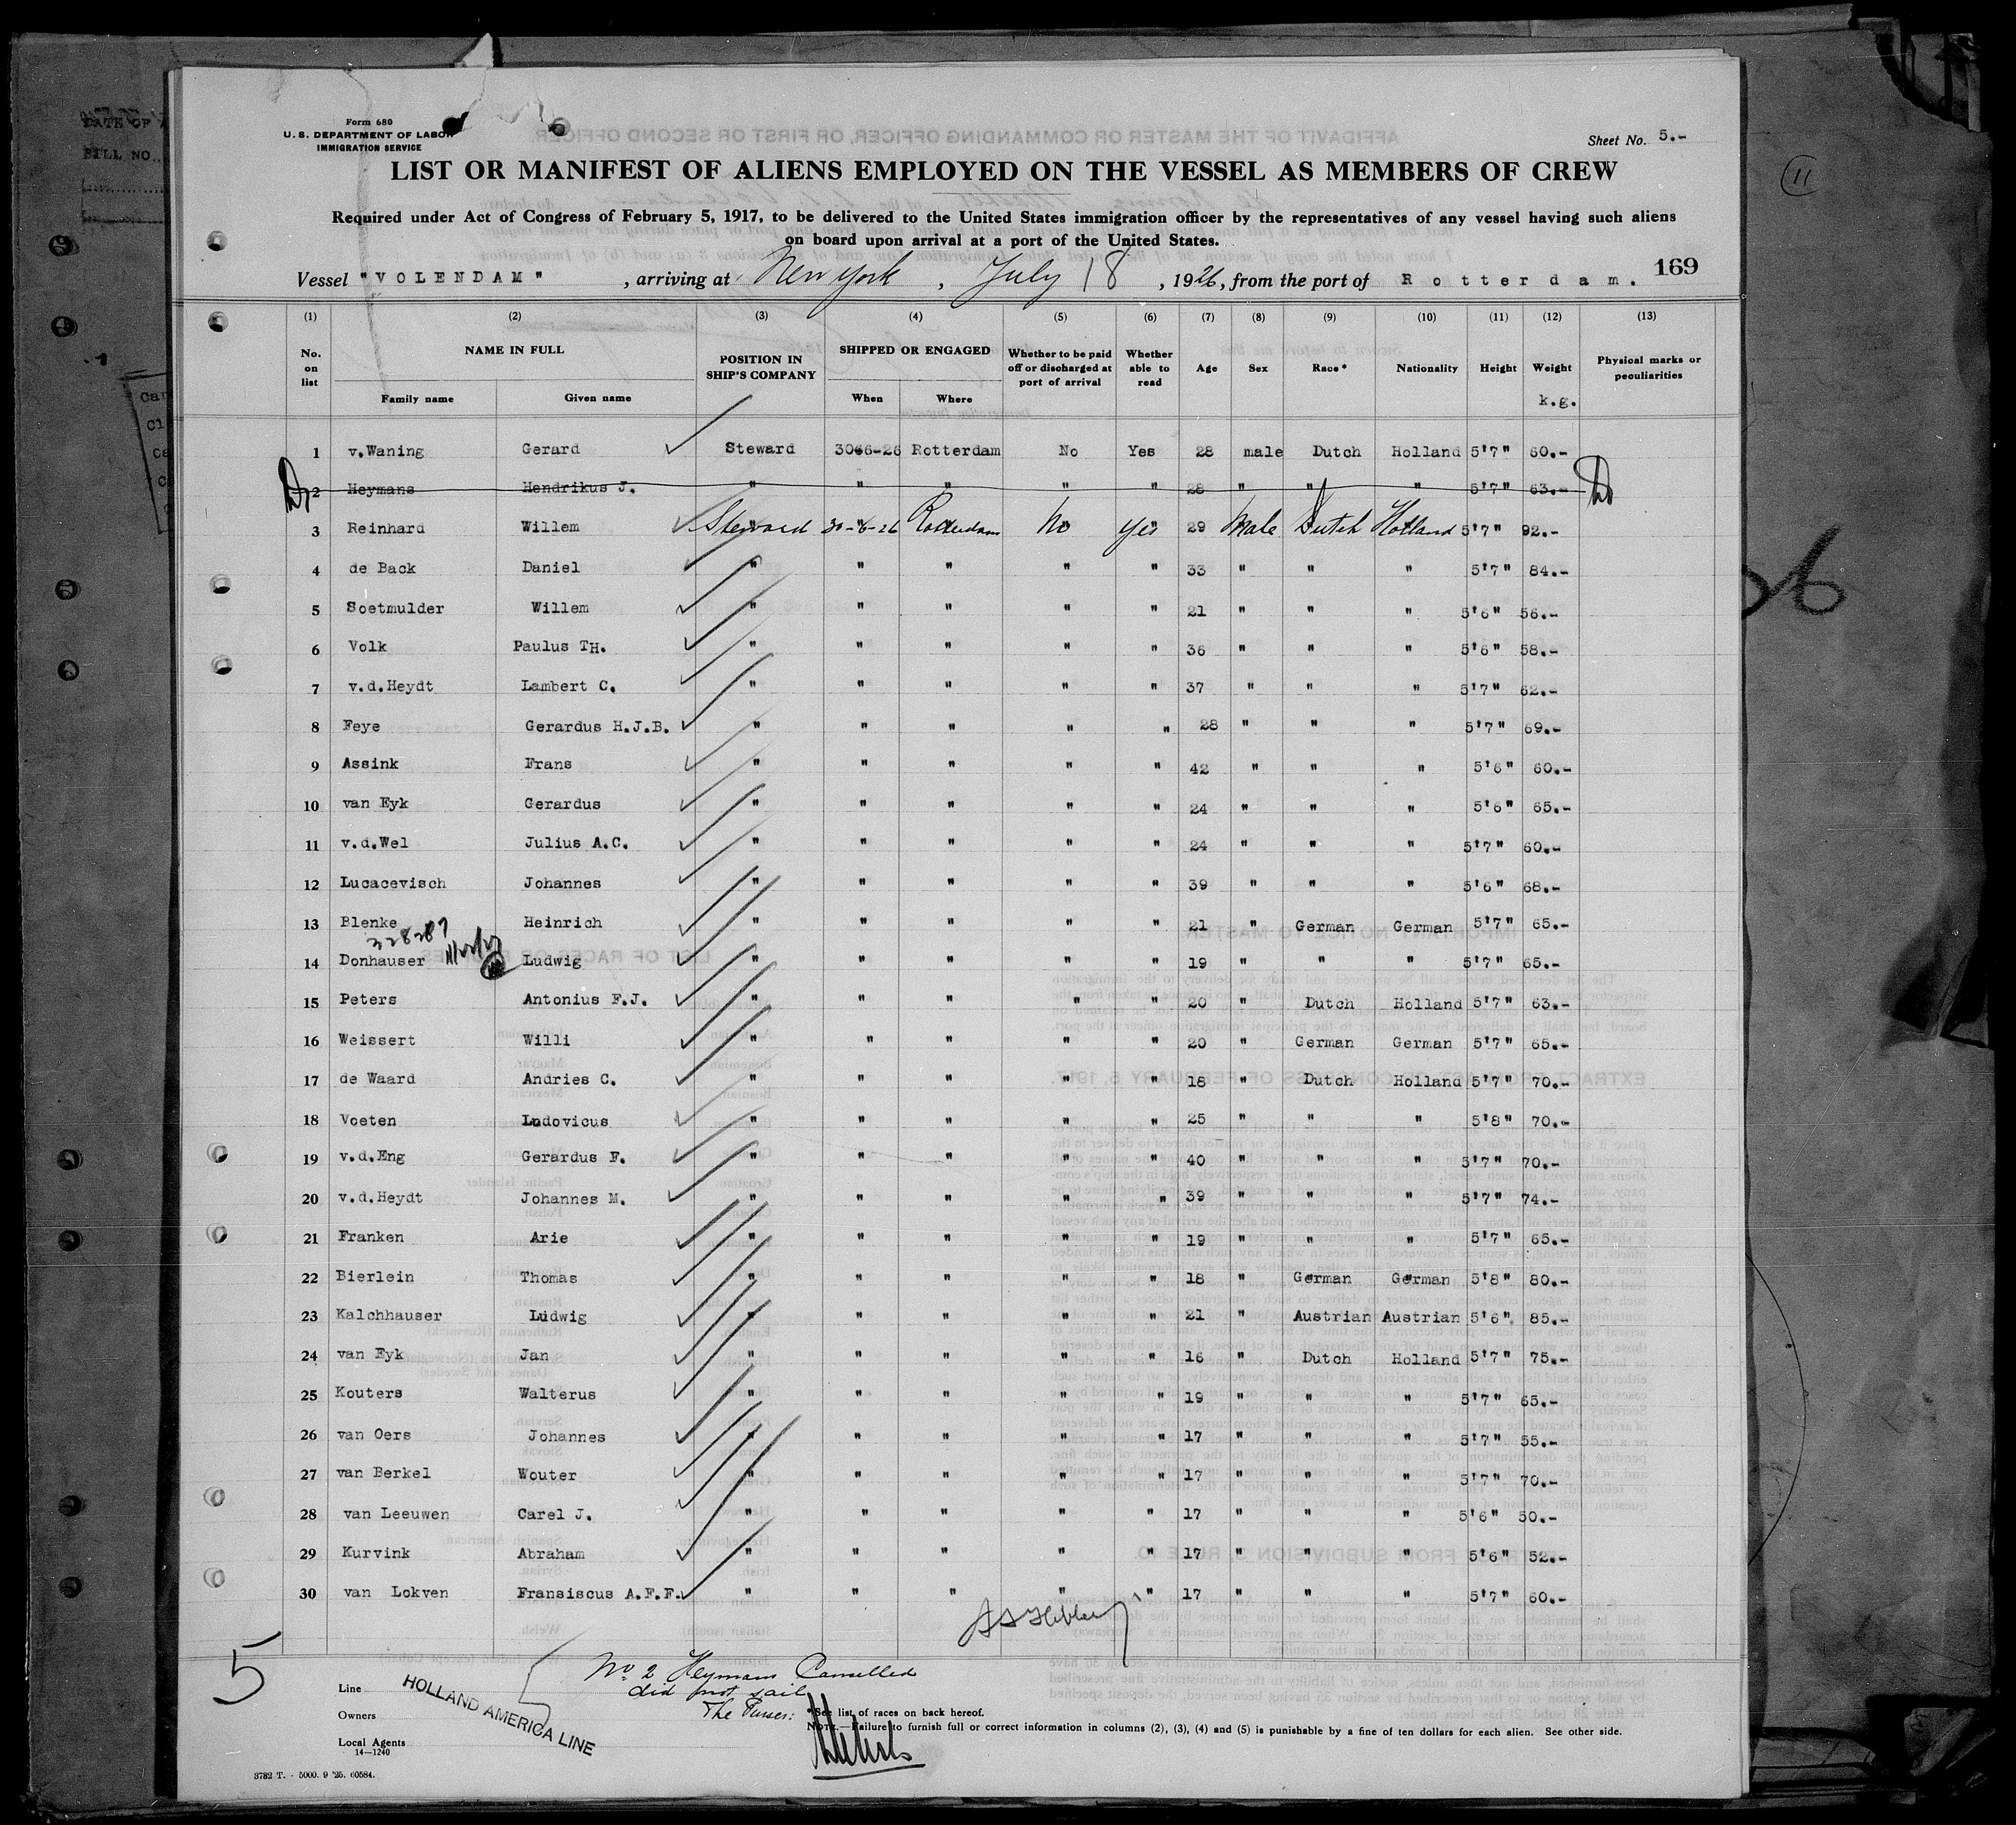 Form 680
U. S. DEPARTMENT OF LABOR
IMMIGRATION SERVICE
Sheet No. 5.-
LIST OR MANIFEST OF ALIENS EMPLOYED ON THE VESSEL AS MEMBERS OF CREW
Required under Act of Congress of February 5, 1917, to be delivered to the United States immigration officer by the representatives of any vessel having such aliens
on board upon arrival at a port of the United States.
169
Vessel "VOLENDAM" , arriving at New York , July 18 , 1926, from the port of Rotterdam.
(1) (2) (3) (4) (5) (6) (7) (8) (9) (10) (11) (12) (13)
No. on list NAME IN FULL Family name Given name POSITION IN SHIP'S COMPANY SHIPPED OR ENGAGED When Where Whether to be paid off or discharged at port of arrival Whether able to read Age Sex Race* Nationality Height Weight k.g. Physical marks or peculiarities
1 v.Waning Gerard Steward 30-6-26 Rotterdam No Yes 28 male Dutch Holland 5'7" 60.-
2 Heymans Hendrikus J. " " " " " 28 " " " 5'7" 63.-
3 Reinhard Willem Steward 30-6-26 Rotterdam No Yes 29 Male Dutch Holland 5'7" 92.-
4 de Back Daniel " " " " " 33 " " " 5'7" 84.-
5 Soetmulder Willem " " " " " 21 " " " 5'6" 56.-
6 Volk Paulus TH. " " " " " 36 " " " 5'6" 58.-
7 v.d.Heydt Lambert C. " " " " " 37 " " " 5'7" 62.-
8 Feye Gerardus H.J.B. " " " " " 28 " " " 5'7" 69.-
9 Assink Frans " " " " " 42 " " " 5'6" 60.-
10 van Eyk Gerardus " " " " " 24 " " " 5'6" 65.-
11 v.d.Wel Julius A.C. " " " " " 24 " " " 5'7" 60.-
12 Lucacevisch Johannes " " " " " 39 " " " 5'6" 68.-
13 Blenke Heinrich " " " " " 21 " German German 5'7" 65.-
14 Donhauser Ludwig " " " " " 19 " " " 5'7" 65.-
15 Peters Antonius F.J. " " " " " 20 " Dutch Holland 5'7" 63.-
16 Weissert Willi " " " " " 20 " German German 5'7" 65.-
17 de Waard Andries C. " " " " " 18 " Dutch Holland 5'7" 70.-
18 Voeten Ludovicus " " " " " 25 " " " 5'8" 70.-
19 v.d.Eng Gerardus F. " " " " " 40 " " " 5'7" 70.-
20 v.d.Heydt Johannes M. " " " " " 39 " " " 5'7" 74.-
21 Franken Arie " " " " " 19 " " " 5'7" 65.-
22 Bierlein Thomas " " " " " 18 " German German 5'8" 80.-
23 Kalchhauser Ludwig " " " " " 21 " Austrian Austrian 5'6" 85.-
24 van Eyk Jan " " " " " 16 " Dutch Holland 5'7" 75.-
25 Kouters Walterus " " " " " 19 " " " 5'7" 65.-
26 van Oers Johannes " " " " " 17 " " " 5'7" 55.-
27 van Berkel Wouter " " " " " 17 " " " 5'7" 70.-
28 van Leeuwen Carel J. " " " " " 17 " " " 5'6" 50.-
29 Kurvink Abraham " " " " " 17 " " " 5'6" 52.-
30 van Lokven Fransiscus A.F.F. " " " " " 17 " " " 5'7" 60.-
5
No 2 Heymans Cancelled
did not sail
The Purser:
Line
HOLLAND AMERICA LINE
Owners
Local Agents
14—1240
*See list of races on back hereof.
NOTE.—Failure to furnish full or correct information in columns (2), (3), (4) and (5) is punishable by a fine of ten dollars for each alien. See other side.
3732 T. - 5000. 9 '25. 60584.
11
DATE OF
BILL NO.